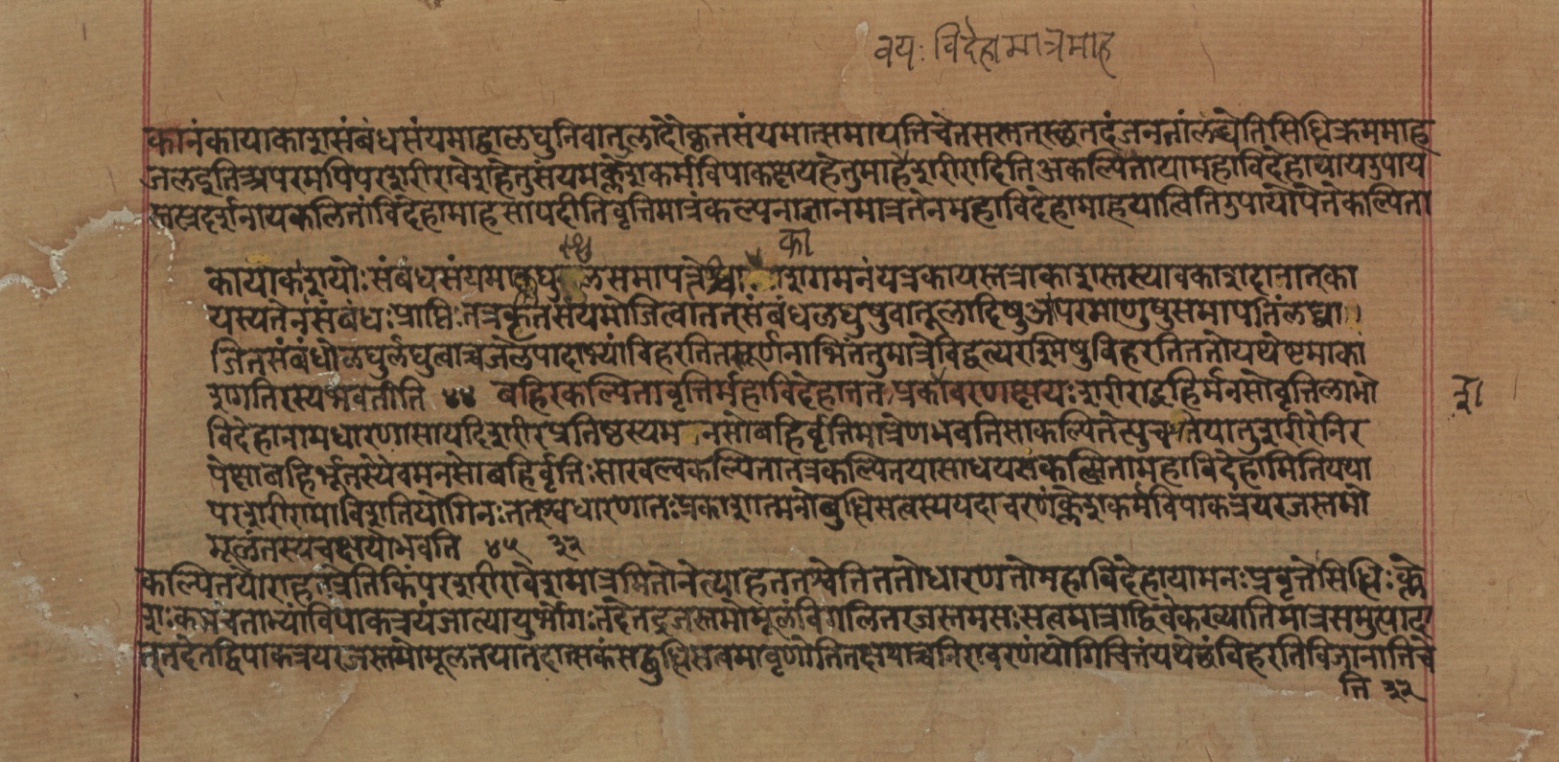 वयः विदेहामात्रमाह
कानं कायाकाशसंबंधसंयमाद्वा लघुनि वा तुलादौ कृतसंयमात्समापत्तिं चेतसस्तत्स्थतदंजनतां लब्ध्वेति सिद्धिक्रममाह
जल इति अपरमपि परशरीरावेशहेतुसंयमक्लेशकर्मविपाकक्षयहेतुमाह शरीरादिति अकल्पिताया महाविदेहाया य उपाय
स्तत्प्रदर्शनाय कल्पितां विदेहामाह सा यदीति वृत्तिमात्रं कल्पनाज्ञानमात्रतेन महाविदेहामाह या त्विति उपायोपेते कल्पिता
का
कायाकाशयोः संबंधसंयमाल्लघुतूलसमापत्तेश्चाकाशगमनं यत्र कायस्तत्राकाशस्तस्यावकाशदानात् का
यस्य तेन संबंधः प्राप्तिः तत्र कृतसंयमो जित्वा तत्संबंधं लघुषु वा तूलादिषु आपरमाणुषु समापत्तिं लब्ध्वा
जितसंबंधो लघुर्लघुत्वाच्च जले पादाभ्यां विहरति ततस्तूर्णनाभितंतुमात्रे विहृत्य रश्मिषु विहरति ततो यथेष्टमाका
शगतिरस्य भवतीति ४४ बहिरकल्पिता वृत्तिर्महाविदेहा ततः प्रकाशावरणक्षयः शरीराद्बहिर्मनसो वृत्तिलाभो
शा
विदेहा नाम धारणा सा यदि शरीरप्रतिष्ठस्य मनसो बहिर्वृत्तिमात्रेण भवति सा कल्पितेत्युच्यते या तु शरीरनिर
पेक्षा बहिर्भूतस्यैव मनसो बहिर्वृत्तिः सा खल्वकल्पिता तत्र कल्पितया साधयत्यकल्पितां महाविदेहामिति यया
परशरीराण्याविशंति योगिनः ततश्च धारणातः प्रकाशात्मनो बुद्धिसत्वस्य यदावरणं क्लेशकर्मविपाकत्रयं रजस्तमो
मूलं तस्य च क्षयो भवति ४५ ३२
कल्पितयोराह तत्रेति किं परशरीरावेशमात्रमितो नेत्याह ततश्चेति ततो धारणातो महाविदेहाया मनःप्रवृत्तेः सिद्धिः क्ले
शः कर्म च ताभ्यां विपाकत्रयं जात्यायुर्भोगाः तदेतद्रजस्तमोमूलं विगलितरजस्तमसः सत्वमात्राद्विवेकख्यातिमात्रसमुत्पादा
त् तदेतद्विपाकत्रयं रजस्तमोमूलतया तदात्मकं सद्बुद्धिसत्वमावृणोति तत्क्षयाच्च निरावरणं योगिचित्तं यथेच्छं विहरति विजानाति चे
ति ३२